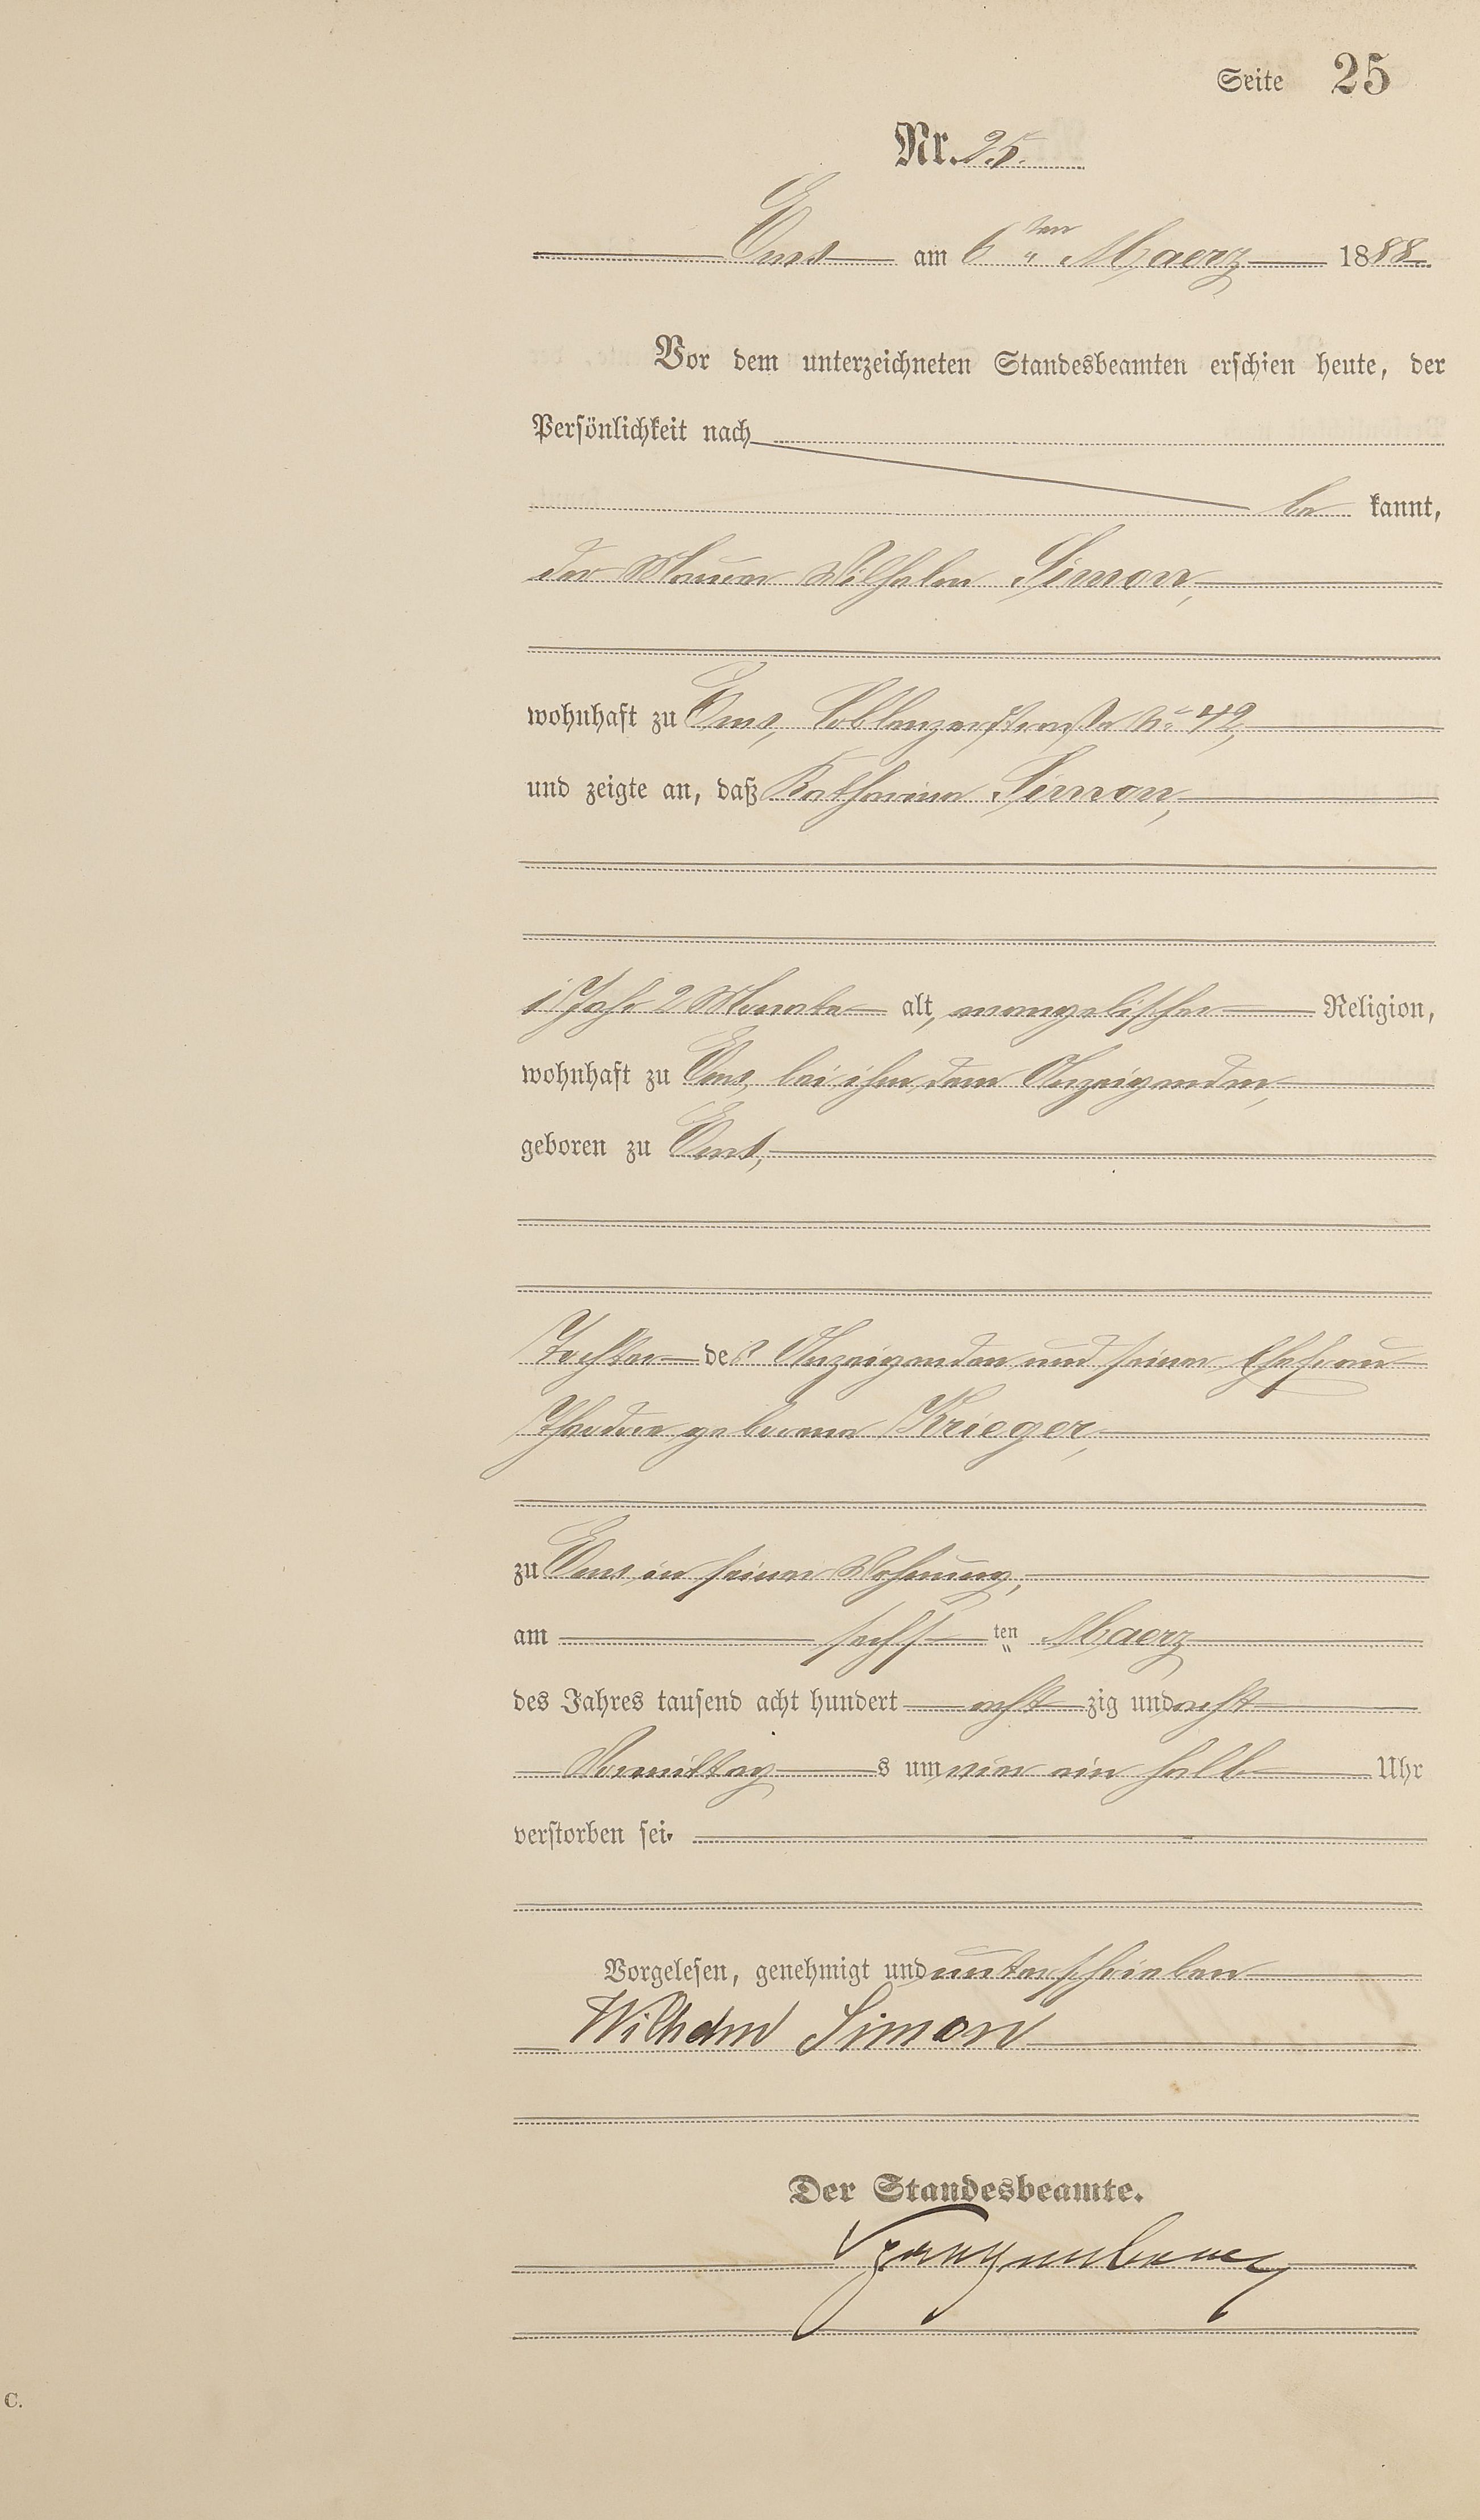 Seite 25
Nr. 25.
Ems am 6ten Maerz 1888.
Vor dem unterzeichneten Standesbeamten erschien heute, der
Persönlichkeit nach
be kannt,
der Maurer Wilhelm Simon,
wohnhaft zu Ems, Coblenzerstraße No 42,
und zeigte an, daß Katharina Simon,
1 Jahr 2 Monate alt, evangelischer Religion,
wohnhaft zu Ems, bei ihm dem Anzeigenden,
geboren zu Ems,
Tochter des Anzeigenden und seiner Ehefrau
geborene Krieger,
zu Ems in seiner Wohnung,
am sechsten Maerz
des Jahres tausend acht hundert acht zig und acht
Vormittags um vier ein halb Uhr
verstorben sei.
Vorgelesen, genehmigt und unterschrieben
Wilhelm Simon
Der Standesbeamte.
C.